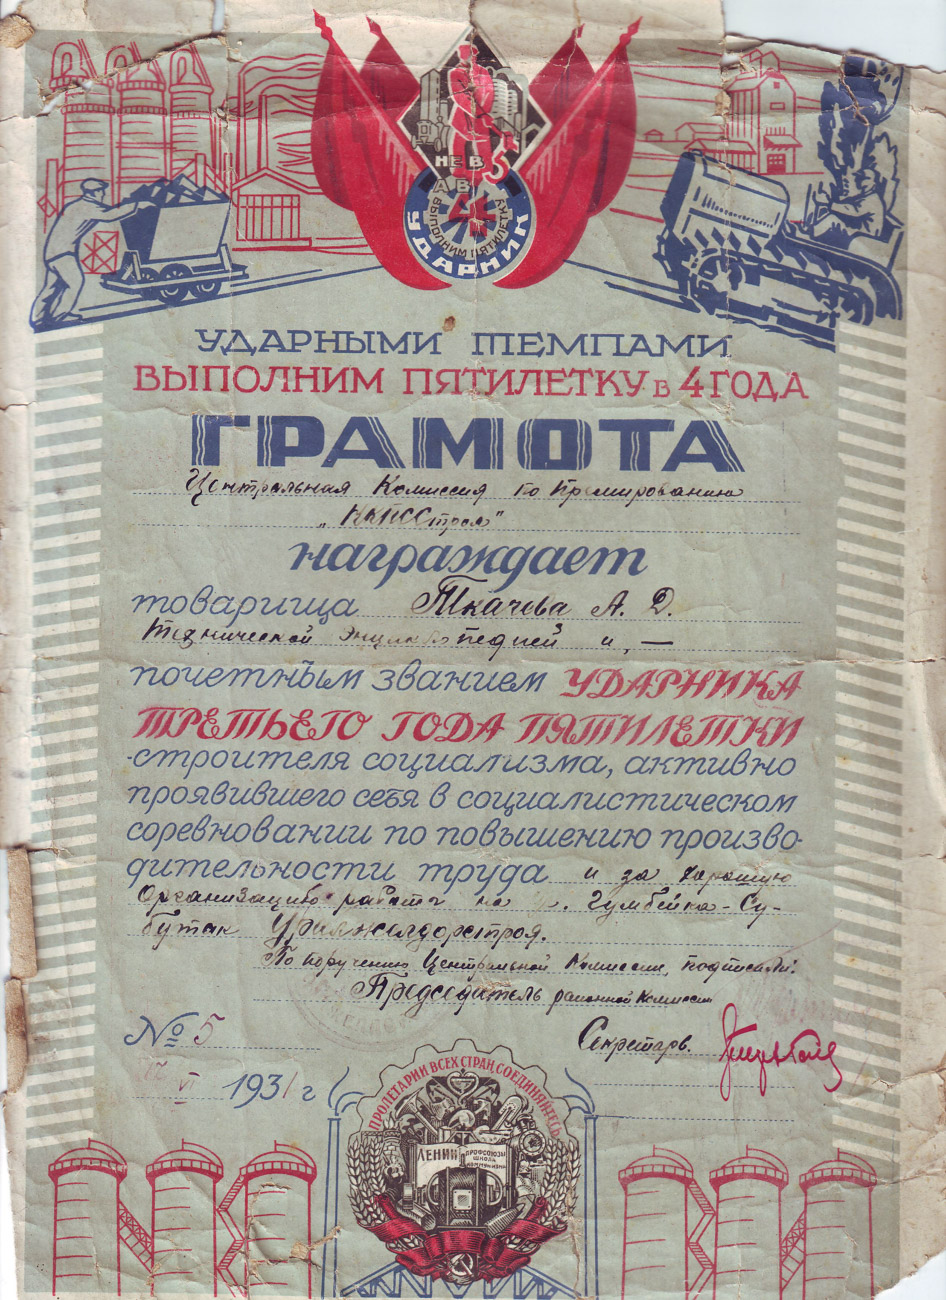 НЕ В
5
А В
4
ВЫПОЛНИМ ПЯТИЛЕТКУ
УДАРНИК
УДАРНЫМИ ТЕМПАМИ
ВЫПОЛНИМ ПЯТИЛЕТКУ в 4 ГОДА
ГРАМОТА
Центральная Комиссия по Премированию
награждает
товарища Ткачева А. Д.
Технической Энциклопедией и, —
почетным званием УДАРНИКА
ТРЕТЬЕГО ГОДА ПЯТИЛЕТКИ
-строителя социализма, активно
проявившего себя в социалистическом
соревновании по повышению произво-
дительности труда и за хорошую
Организацию работы на Гумбейка-Су-
бутак Уралжелдорстроя.
По поручению Центральной Комиссии, подписали:
Председатель районной Комиссии
№ 5
Секретарь.
VI 1931 г
ПРОЛЕТАРИИ ВСЕХ СТРАН, СОЕДИНЯЙТЕСЬ
ЛЕНИН
ПРОФСОЮЗЫ
ШКОЛА
КОММУНИЗМА